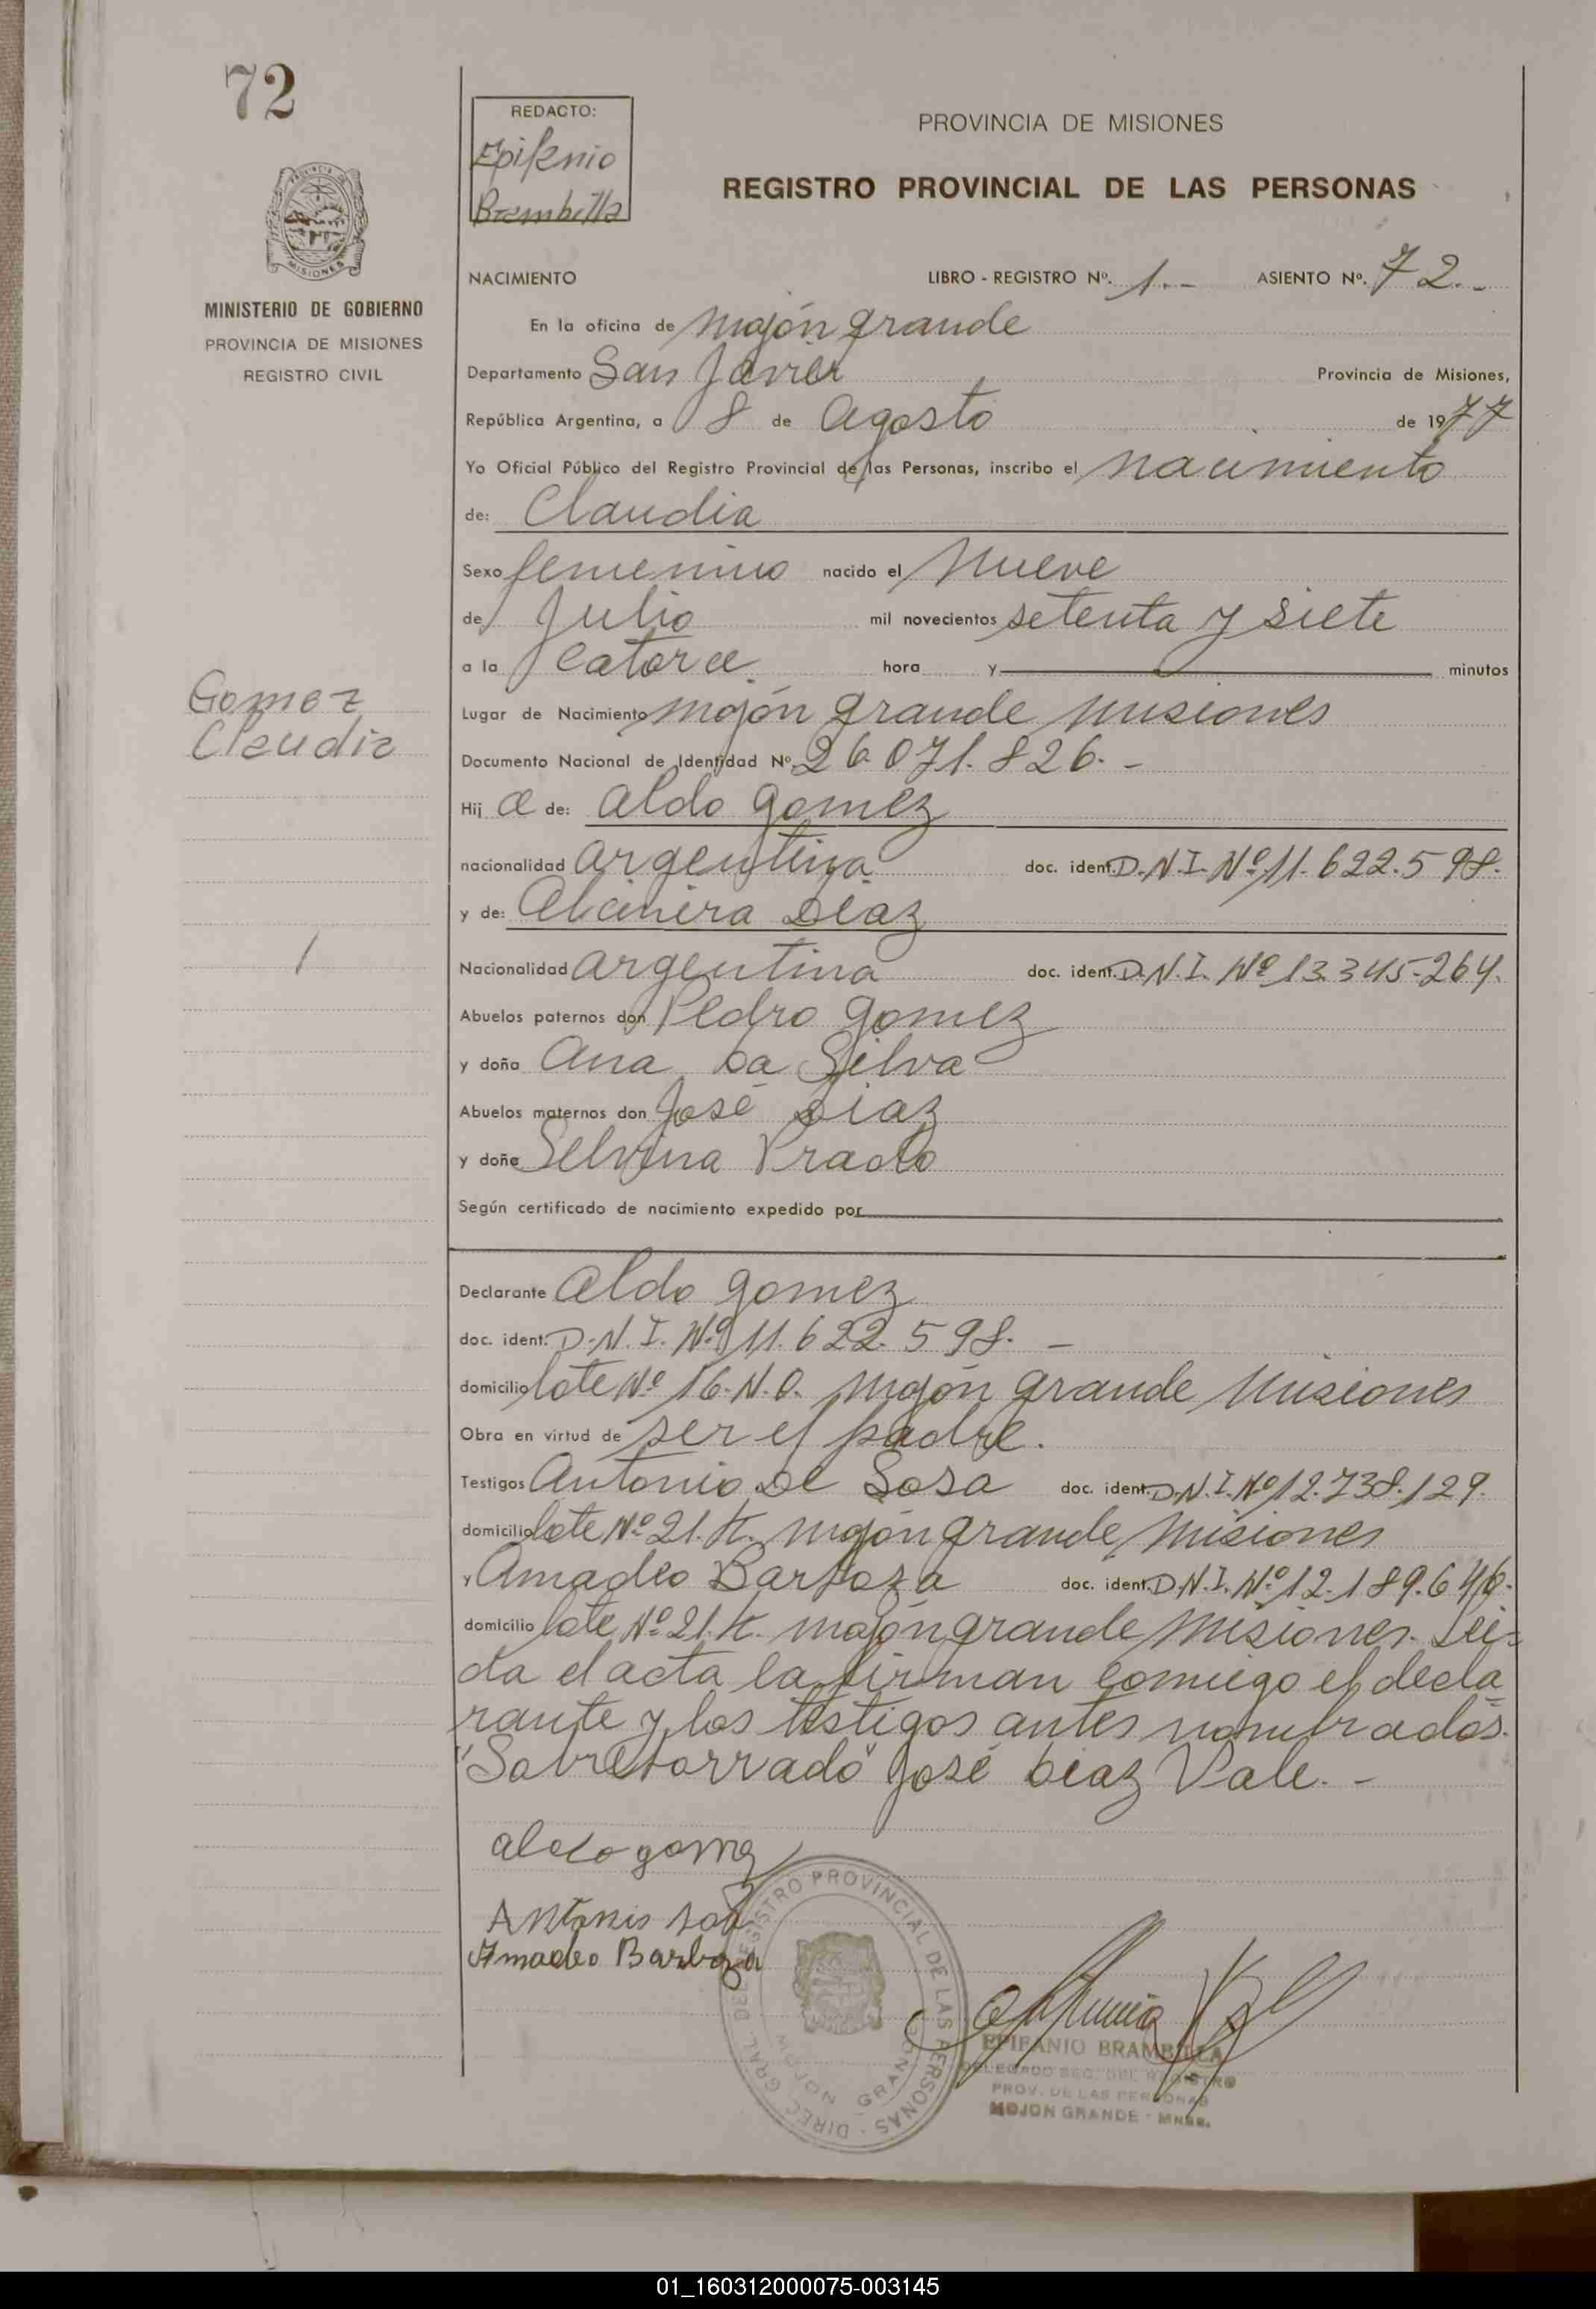 72
REDACTO:
Epifanio
Brambilla
PROVINCIA DE MISIONES
REGISTRO PROVINCIAL DE LAS PERSONAS
PROVINCIA DE
MISIONES
MINISTERIO DE GOBIERNO
PROVINCIA DE MISIONES
REGISTRO CIVIL
NACIMIENTO LIBRO - REGISTRO Nº. 1.- ASIENTO Nº. 72.-
En la oficina de Mojón grande
Departamento San Javier Provincia de Misiones,
República Argentina, a 8 de Agosto de 1977
Yo Oficial Público del Registro Provincial de las Personas, inscribo el nacimiento
de: Claudia
Sexo femenino nacido el nueve
de Julio mil novecientos setenta y siete
a la catorce hora y minutos
Gomez
Claudia
Lugar de Nacimiento mojón grande misiones
Documento Nacional de Identidad Nº. 26.071.826.-
Hij a de: aldo gomez
nacionalidad argentina doc. ident. D.N.I. Nº 11.622.598.
y de: Diaz
Nacionalidad argentina doc. ident. D.N.I. Nº 13.345.264.
Abuelos paternos don Pedro gomez
y doña Ana Da Silva
Abuelos maternos don José Diaz
y doña Selvina Prado
Según certificado de nacimiento expedido por
Declarante aldo gomez
doc. ident. D.N.I. Nº 11.622.598.-
domicilio lote Nº 16.N.O. mojón grande misiones
Obra en virtud de ser el padre.
Testigos Antonio De Sosa doc. ident. D.N.I. Nº 12.738.129.
domicilio lote Nº 21.K. mojón grande, Misiones
y Amadeo Barboza doc. ident. D.N.I. Nº 12.189.646.
domicilio lote Nº 21.K. mojón grande Misiones. Lei=
da el acta la firman conmigo el decla
rante y los testigos antes nombrados.
"Sobreborrado" José Diaz Vale.-
aldo gomez
Antonio
Amadeo Barboza
DIREC. GRAL. DEL REGISTRO PROVINCIAL DE LAS PERSONAS
MOJON GRANDE
EPIFANIO BRAMBILLA
DELEGADO SEC. DEL REGISTRO
PROV. DE LAS PERSONAS
MOJON GRANDE - MNES.
01_160312000075-003145